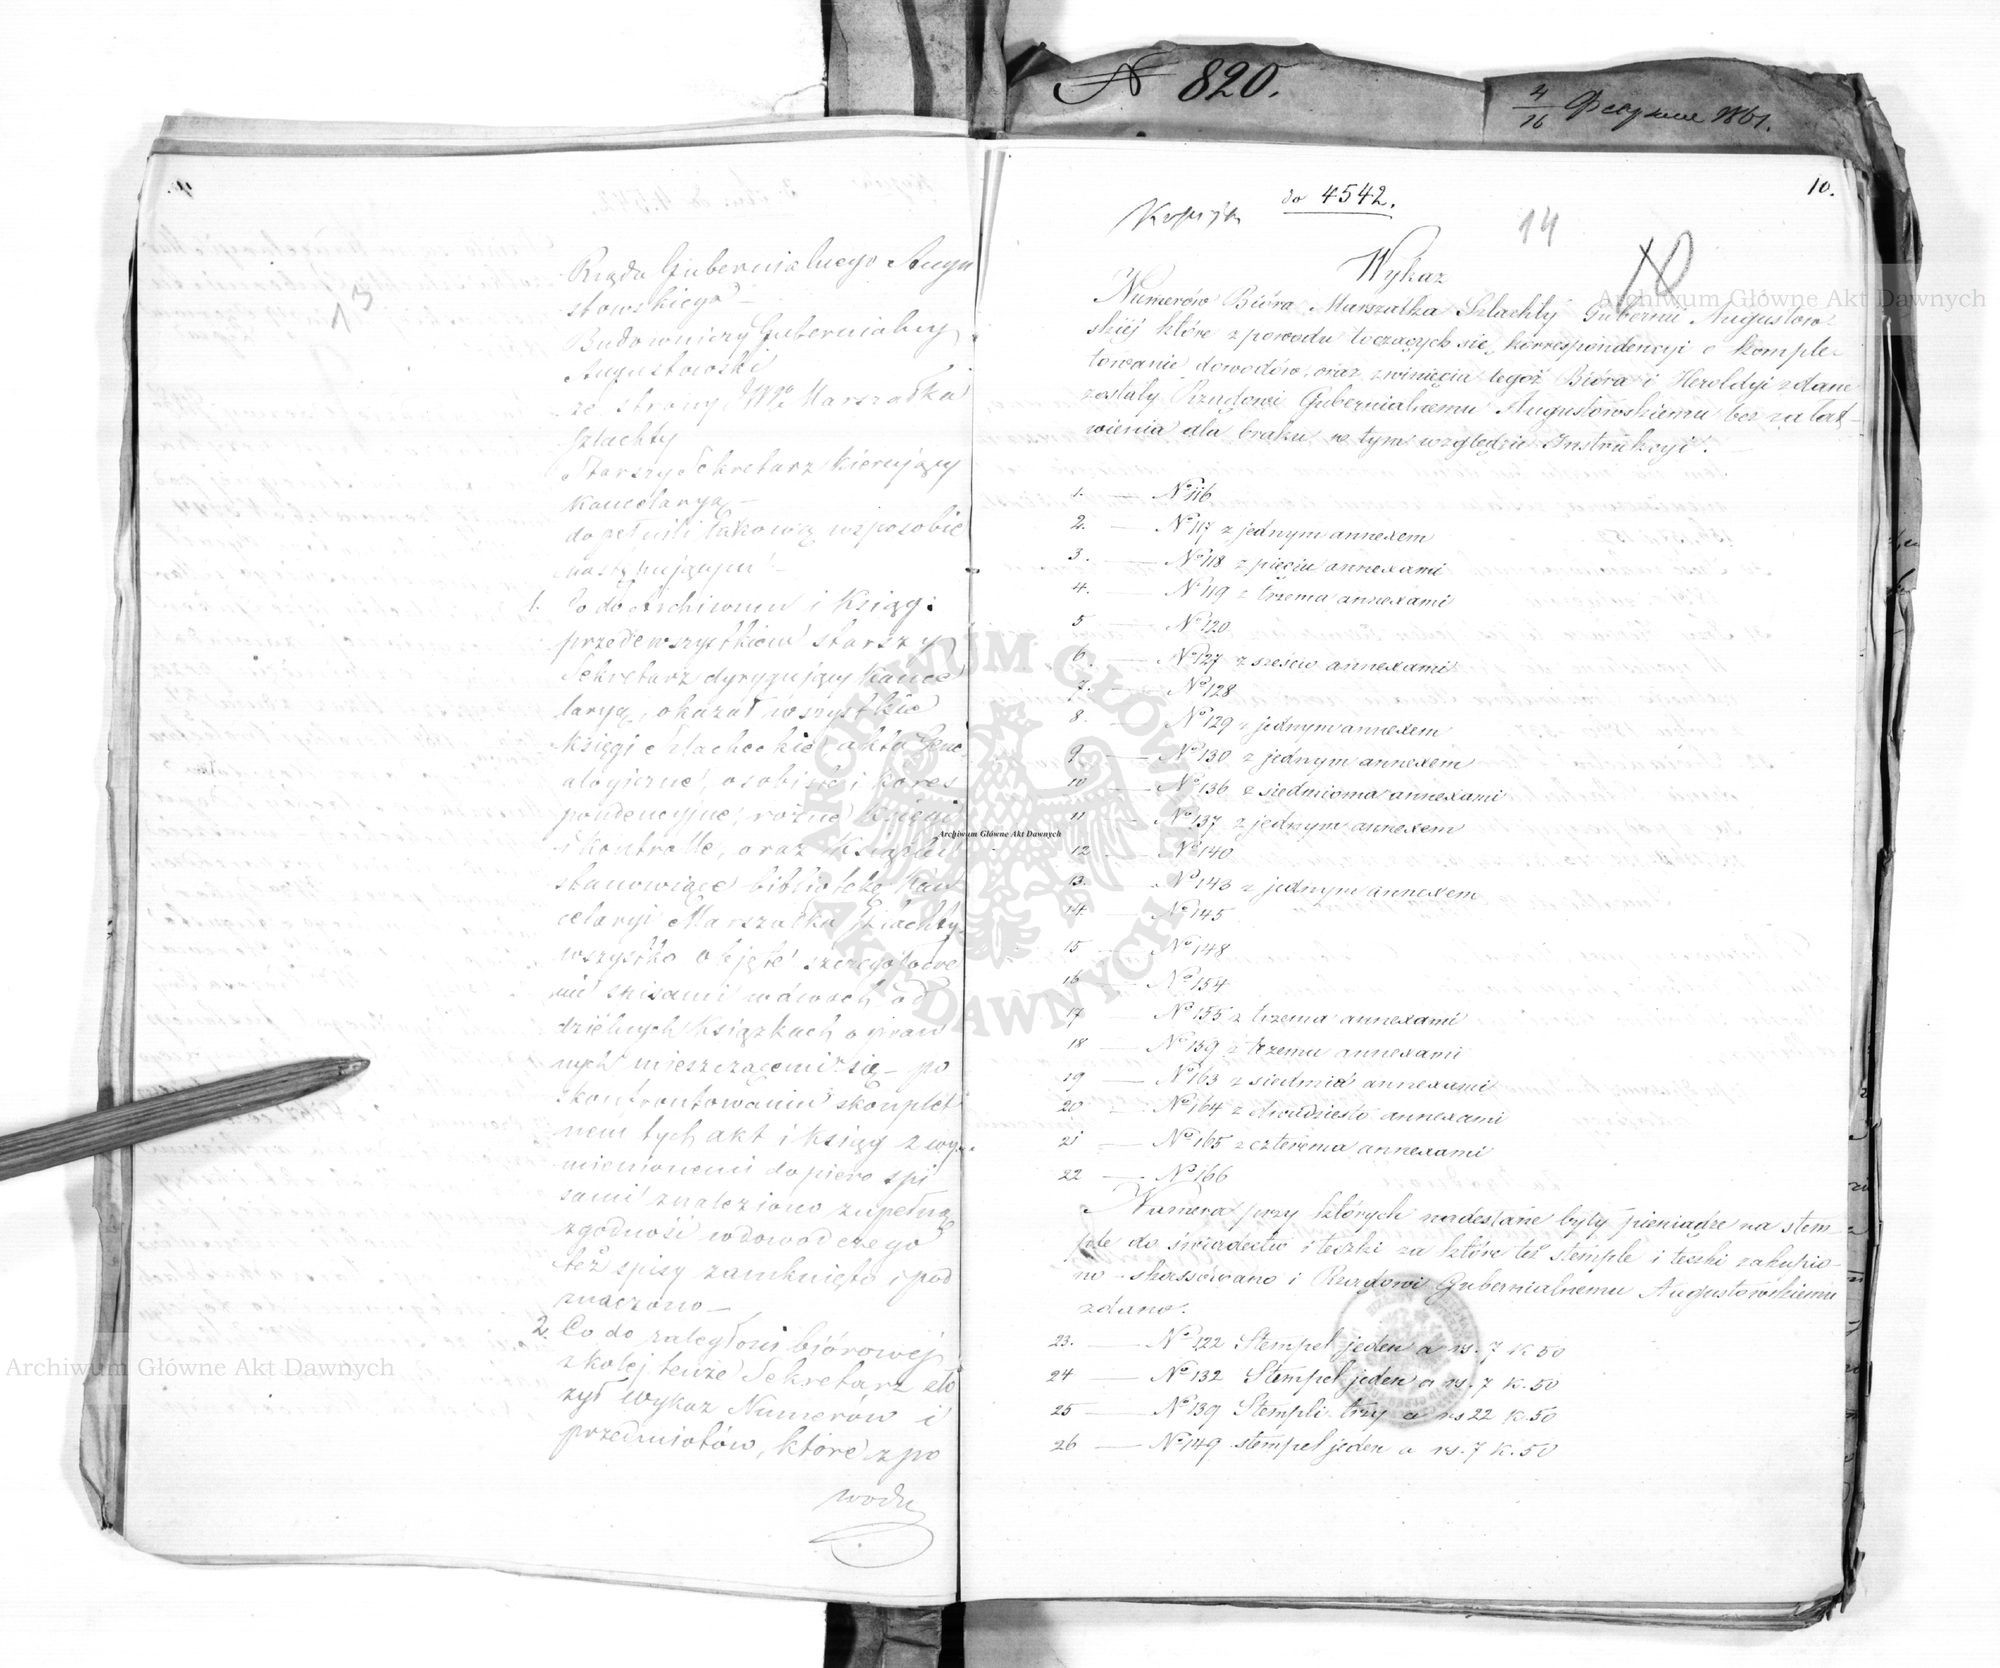 N 820.
4/16 1861.
13
Rządu Gubernialnego Augu
stowskiego —
Budowniczy Gubernialny
Augustowski
ze strony JWo Marszałka
Szlachty
Starszy Sekretarz kierujący
Kancelaryą —
dopełnili takową wsposobie
następującym —
1. Co do Archiwum i Ksiąg:
przedewszystkiem starszy
Sekretarz dyrygujący Kance
laryą, okazał wszystkie
Księgi Szlacheckie, akta Gene
alogiczne, osobiste i kores
pondencyjne, różne Księgi
i Kontrolle, oraz Książki
stanowiące bibliotekę Kan
celaryi Marszałka Szlachty
wszystko objęte szczegółowe
mi spisami wdwóch od
dzielnych Książkach opraw
nych mieszczącemi się — po
skontrontowaniu skomplet
nem tych akt i Ksiąg z wy
mienionemi dopiero spi
sami znaleziono zupełną
zgodność wdowód czego
też spisy zamknięto i pod
znaczono —
2. Co do zaległości biórowéj
zkolej tenże Sekretarz zło
żył wykaz Numerów i
przedmiotów, które zpo
wodu
10.
do 4542.
Kopija
14
10
Wykaz
Numerów Bióra Marszałka Szlachty Gubernii Augustow
skiéj które zpowodu toczących się korrespondencyi o komple-
towanie dowodów, oraz zwinięcia tegoż Bióra i Heroldyi zdane
zostały Rządowi Gubernialnemu Augustowskiemu bez załat-
wienia dla braku w tym względzie Instrukcyi. —
1. — No 116
2. — No 117 z jednym annexem
3. — No 118 z pięciu annexami
4. — No 119 z trzema annexami
5 — No 120
6. — No 127 z sześciu annexami
7. — No 128
8. — No 129 z jednym annexem
9 — No 130 z jednym annexem
10 — No 136 z siedmioma annexami
11 — No 137 z jednym annexem
12 — No 140
13. — No 143 z jednym annexem
14 — No 145
15 — No 148
16 — No 154
17 — No 155 z trzema annexami
18 — No 159 z trzema annexami
19 — No 163 z siedmią annexami
20 — No 164 z dwudziesto annexami
21 — No 165 z czterema annexami
22 — No 166
Numera przy których nadesłane były pieniądze na stem-
ple do świadectw i teczki za które też stemple i teczki zakupio-
no — skassowano i Rządowi Gubernialnemu Augustowskiemu
zdano.
23. — No 122 Stempel jeden a rs. 7 k. 50
24 — No 132 Stempel jeden a rs. 7 k. 50
25 — No 139 Stempli trzy a rs 22 k. 50
26 — No 149 stempel jeden a rs. 7 k. 50
Archiwum Główne Akt Dawnych
Archiwum Główne Akt Dawnych
Archiwum Główne Akt Dawnych
ARCHIWUM GŁÓWNE AKT DAWNYCH